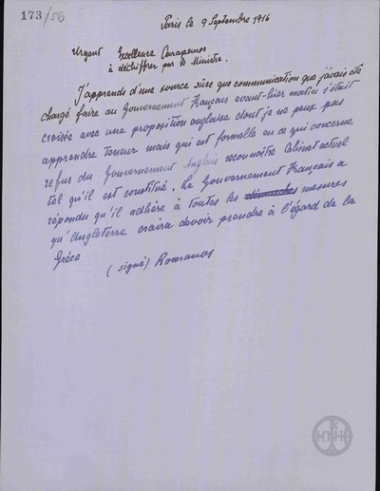 173/56
Paris le 9 Septembre 1916
Urgent Excellence Carapanos
à déchiffrer par le Ministre.
J'apprends d'une source sûre que communication que j'avais été
chargé faire au Gouvernement Français avant-hier matin s'était
croisée avec une proposition anglaise dont je ne peux pas
apprendre teneur mais qui est formelle en ce qui concerne
refus du Gouvernement Anglais reconnaître Cabinet actuel
tel qu'il est constitué. Le Gouvernement Français a
répondu qu'il adhère à toutes les mesures
qu'Angleterre croira devoir prendre à l'égard de la
Grèce
(signé) Romanos